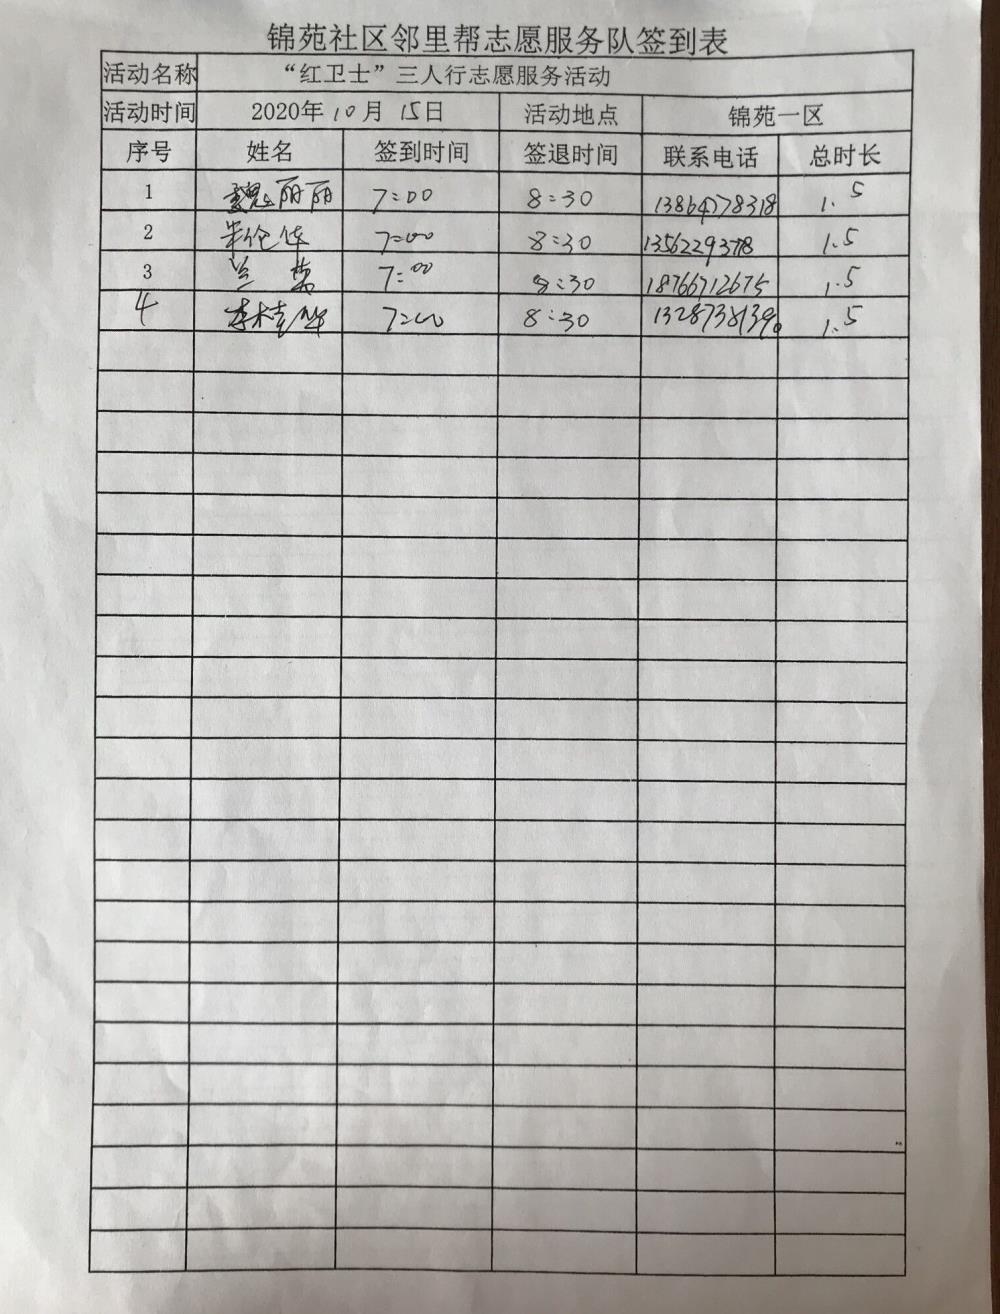 锦苑社区邻里帮志愿服务队签到表
活动名称 “红卫士”三人行志愿服务活动
活动时间 2020年10月15日 活动地点 锦苑一区
序号 姓名 签到时间 签退时间 联系电话 总时长
1 魏丽丽 7:00 8:30 13864778318 1.5
2 7:00 8:30 1.5
3 7:00 8:30 18766712675 1.5
4 7:00 8:30 1.5